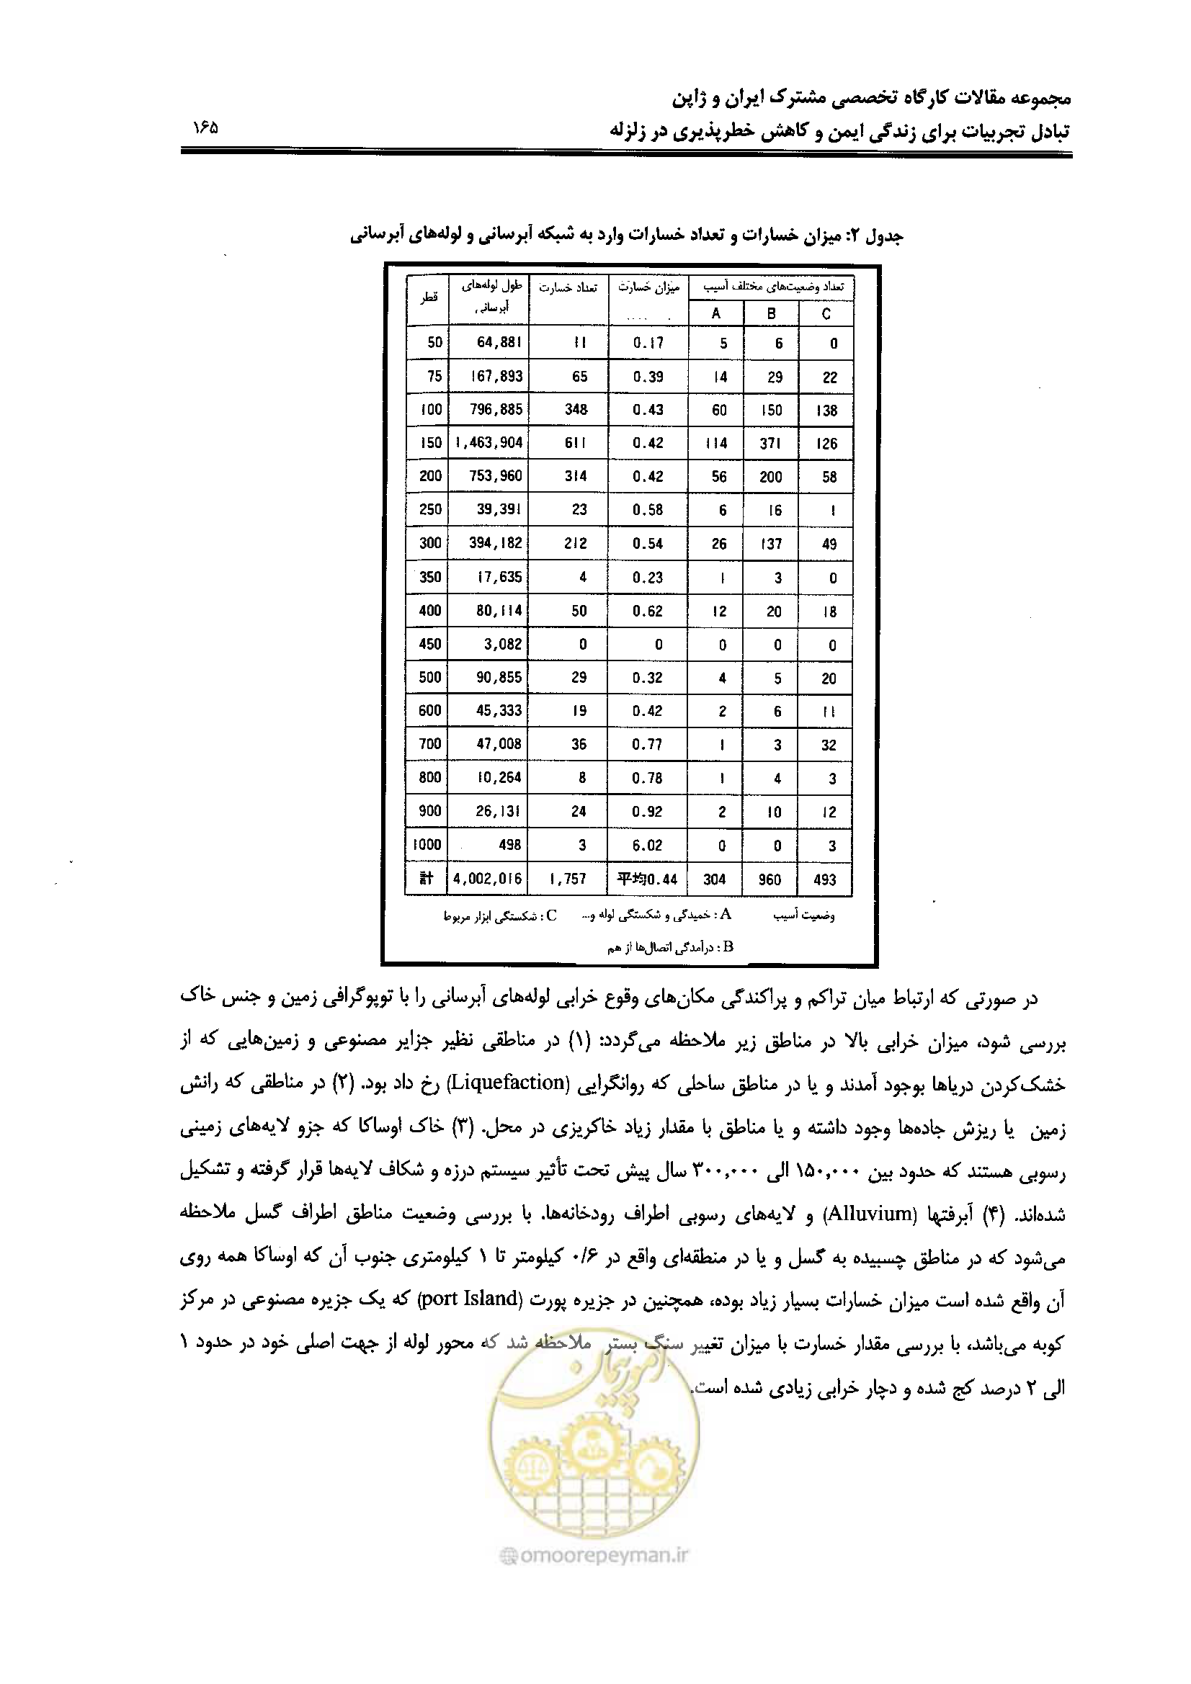 مجموعه مقالات کارگاه تخصصی مشترک ایران و ژاپن
تبادل تجربیات برای زندگی ایمن و کاهش خطرپذیری در زلزله ۱۶۵
جدول ۲: میزان خسارات و تعداد خسارات وارد به شبکه آبرسانی و لوله‌های آبرسانی
قطر طول لوله‌های آبرسانی تعداد خسارت میزان خسارت تعداد وضعیت‌های مختلف آسیب
A B C
50 64,881 11 0.17 5 6 0
75 167,893 65 0.39 14 29 22
100 796,885 348 0.43 60 150 138
150 1,463,904 611 0.42 114 371 126
200 753,960 314 0.42 56 200 58
250 39,391 23 0.58 6 16 1
300 394,182 212 0.54 26 137 49
350 17,635 4 0.23 1 3 0
400 80,114 50 0.62 12 20 18
450 3,082 0 0 0 0 0
500 90,855 29 0.32 4 5 20
600 45,333 19 0.42 2 6 11
700 47,008 36 0.77 1 3 32
800 10,264 8 0.78 1 4 3
900 26,131 24 0.92 2 10 12
1000 498 3 6.02 0 0 3
計 4,002,016 1,757 平均0.44 304 960 493
وضعیت آسیب A : خمیدگی و شکستگی لوله و... C : شکستگی ابزار مربوط
B : درآمدگی اتصال‌ها از هم
در صورتی که ارتباط میان تراکم و پراکندگی مکان‌های وقوع خرابی لوله‌های آبرسانی را با توپوگرافی زمین و جنس خاک
بررسی شود، میزان خرابی بالا در مناطق زیر ملاحظه می‌گردد: (۱) در مناطقی نظیر جزایر مصنوعی و زمین‌هایی که از
خشک‌کردن دریاها بوجود آمدند و یا در مناطق ساحلی که روانگرایی (Liquefaction) رخ داد بود. (۲) در مناطقی که رانش
زمین یا ریزش جاده‌ها وجود داشته و یا مناطق با مقدار زیاد خاکریزی در محل. (۳) خاک اوساکا که جزو لایه‌های زمینی
رسوبی هستند که حدود بین ۱۵۰,۰۰۰ الی ۳۰۰,۰۰۰ سال پیش تحت تأثیر سیستم درزه و شکاف لایه‌ها قرار گرفته و تشکیل
شده‌اند. (۴) آبرفتها (Alluvium) و لایه‌های رسوبی اطراف رودخانه‌ها. با بررسی وضعیت مناطق اطراف گسل ملاحظه
می‌شود که در مناطق چسبیده به گسل و یا در منطقه‌ای واقع در ۰/۶ کیلومتر تا ۱ کیلومتری جنوب آن که اوساکا همه روی
آن واقع شده است میزان خسارات بسیار زیاد بوده، همچنین در جزیره پورت (port Island) که یک جزیره مصنوعی در مرکز
کوبه می‌باشد، با بررسی مقدار خسارت با میزان تغییر سنگ بستر ملاحظه شد که محور لوله از جهت اصلی خود در حدود ۱
الی ۲ درصد کج شده و دچار خرابی زیادی شده است.
امور پیمان
@omoorepeyman.ir